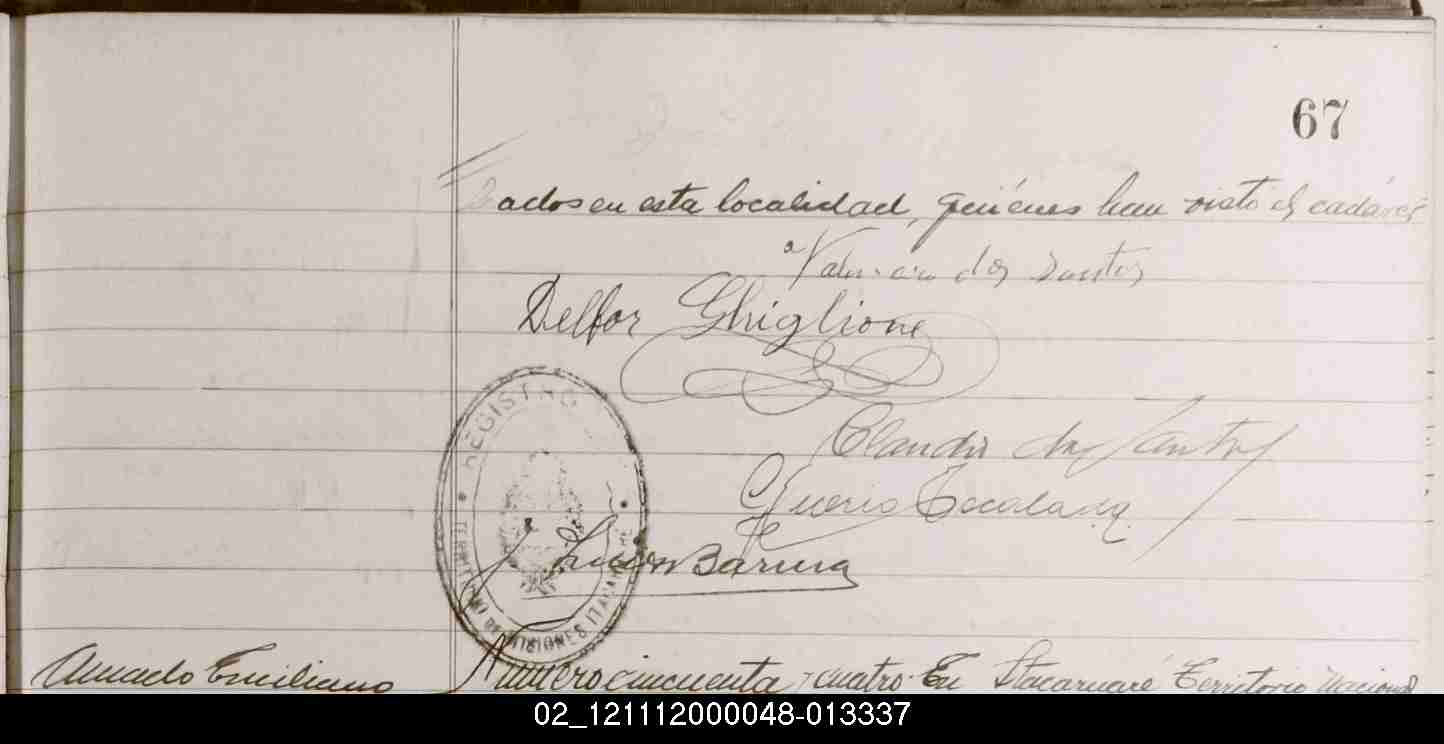 67
ados en esta localidad, quiénes han visto el cadáver
dos Santos
Delfor Ghiglione
Claudio dos Santos
REGISTRO
TERRITORIO DE MISIONES ITACARUARE
Barúa
Amado Emiliano
Número cincuenta y cuatro. En Itacaruaré Territorio Nacional
02_121112000048-013337